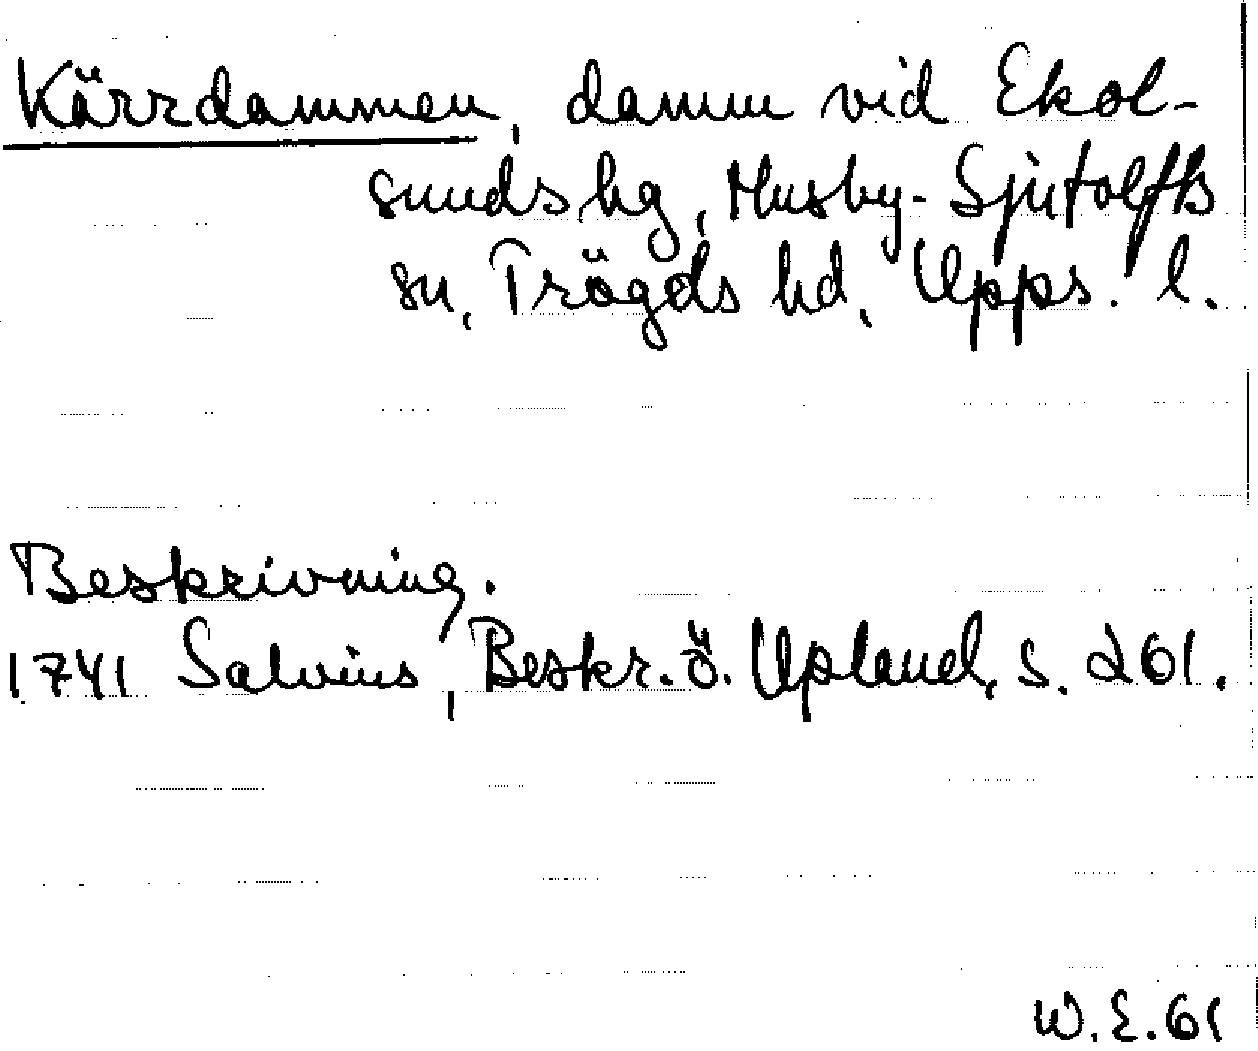 Kärrdammen, damm vid Ekol-
sunds hg, Husby-Sjutolfts
sn, Trögds hd, Upps. l.
Beskrivning.
1741 Salvius, Beskr. ö. Upland, s. 261.
W.E. 61